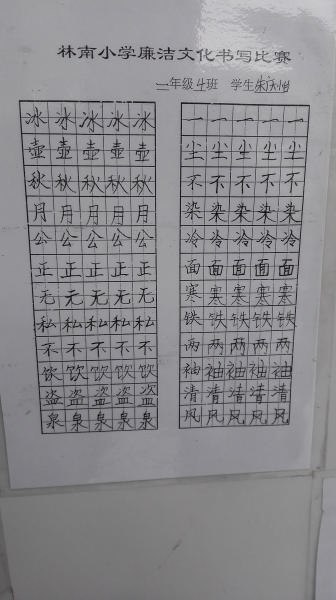 林南小学廉洁文化书写比赛
年级4班 学生
冰冰冰冰冰
壶壶壶壶壶
秋秋秋秋秋
月月月月月
公公公公公
正正正正正
无无无无无
私私私私私
不不不不不
饮饮饮饮饮
盗盗盗盗盗
泉泉泉泉泉
一一一一一
尘尘尘尘尘
不不不不不
染染染染染
冷冷冷冷冷
面面面面面
寒寒寒寒寒
铁铁铁铁铁
两两两两两
袖袖袖袖袖
清清清清清
风风风风风